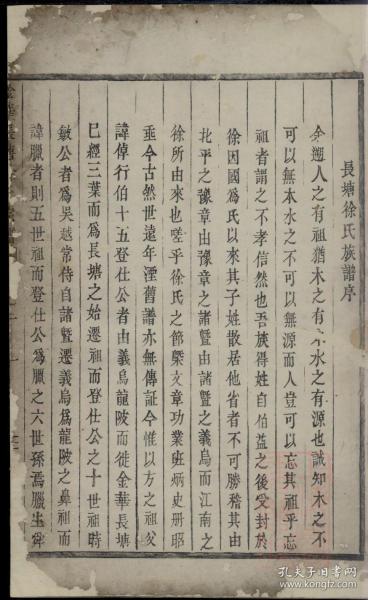 長塘徐氏族譜序
余遡人之有祖猶木之有 水之有源也誠知木之不
可以無本水之不可以無源而人豈可以忘其祖乎忘
祖者謂之不孝信然也吾族得姓自伯益之後受封於
徐因國為氏以來其子姓散居他省者不可勝稽其由
北平之豫章由豫章之諸暨由諸暨之義烏而江南之
徐所由來也嗟乎徐氏之節槩文章功業班炳史册昭
垂今古然世遠年湮舊譜亦無傳証今惟以方之祖父
諱倬行伯十五登仕公者由義烏龍陂而徙金華長塘
已經三葉而為長塘之始遷祖而登仕公之十世祖時
敏公者為吳越常侍自諸暨遷義烏為龍陂之鼻祖而
諱臘者則五世祖而登仕公為臘之六世孫焉臘生
孔夫子旧书网